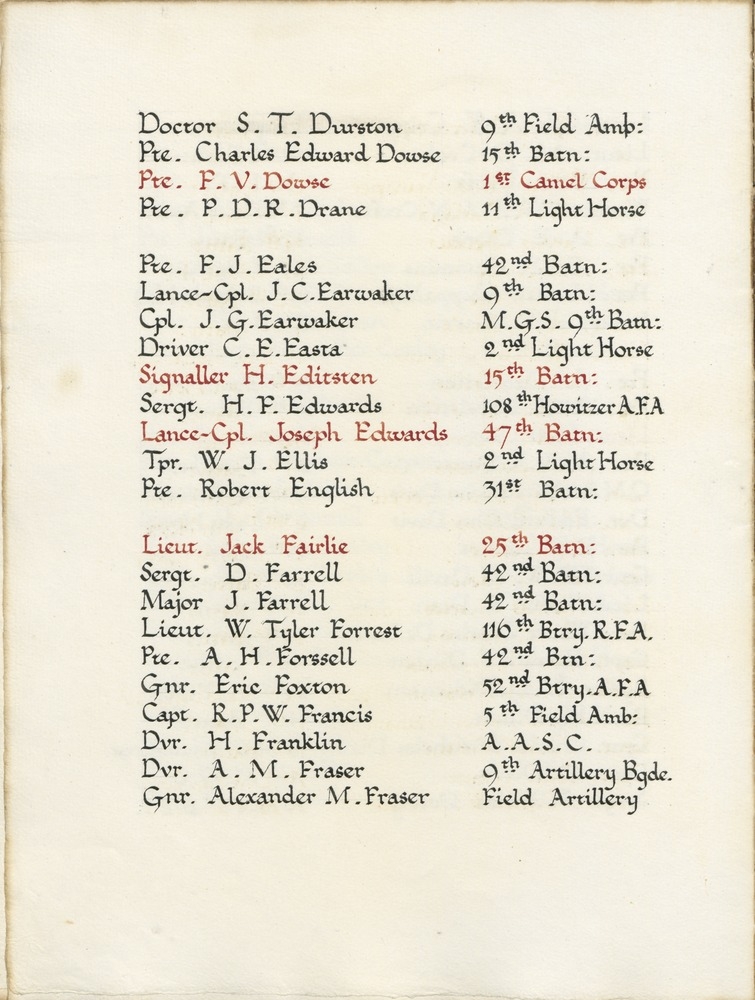 Doctor S. T. Durston 9th Field Amb:
Pte. Charles Edward Dowse 15th Batn:
Pte. F. V. Dowse 1st Camel Corps
Pte. P. D. R. Drane 11th Light Horse
Pte. F. J. Eales 42nd Batn:
Lance-Cpl. J. C. Earwaker 9th Batn:
Cpl. J. G. Earwaker M.G.S. 9th Batn:
Driver C. E. Easta 2nd Light Horse
Signaller H. Editsten 15th Batn:
Sergt. H. F. Edwards 108th Howitzer A.F.A
Lance-Cpl. Joseph Edwards 47th Batn:
Tpr. W. J. Ellis 2nd Light Horse
Pte. Robert English 31st Batn:
Lieut. Jack Fairlie 25th Batn:
Sergt. D. Farrell 42nd Batn:
Major J. Farrell 42nd Batn:
Lieut. W. Tyler Forrest 116th Btry. R.F.A.
Pte. A. H. Forssell 42nd Btn:
Gnr. Eric Foxton 52nd Btry. A.F.A
Capt. R. P. W. Francis 5th Field Amb:
Dvr. H. Franklin A.A.S.C.
Dvr. A. M. Fraser 9th Artillery Bgde.
Gnr. Alexander M. Fraser Field Artillery